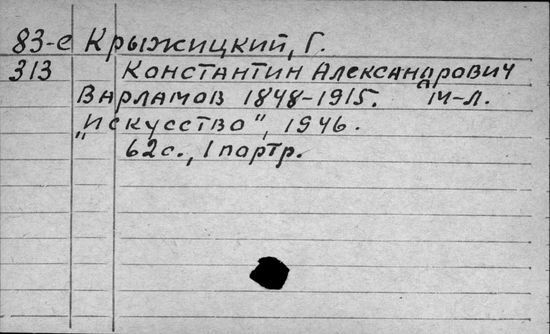 83-е Крыжицкий, Г.
313 Константин Александрович
Варламов 1848-1915. М-Л.
"Искусство", 1946.
62с., 1 портр.